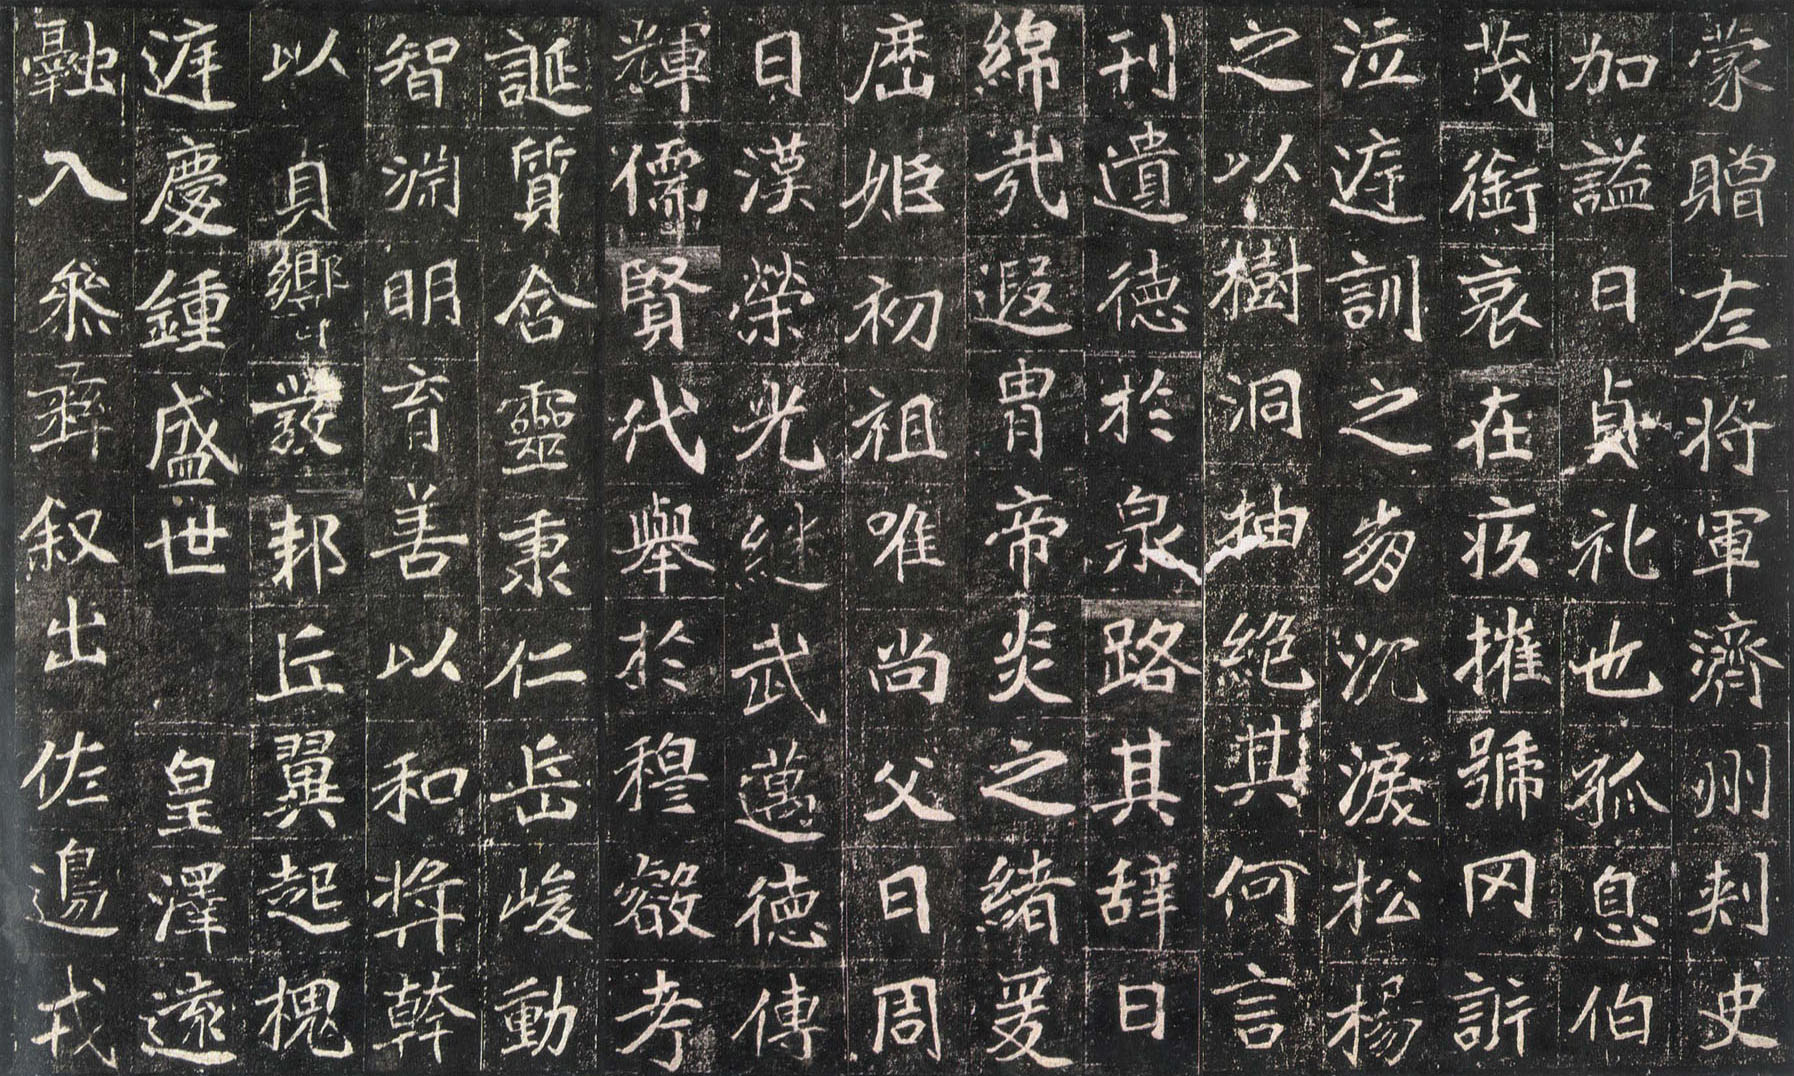 蒙贈左将軍濟州刾史
加謚曰貞礼也孤息伯
茂銜哀在疚摧號罔訴
泣遵訓之崩沉淚松楊
之以樹洞抽絶其何言
刊遺德於泉路其辞曰
綿㢤遐胄帝炎之緒爰
歴姬初祖唯尚父曰周
曰漢榮光継武邁德傳
輝儒賢代舉於穆叡考
誕質含靈秉仁岳峻動
智淵明育善以和奬幹
以貞響發邦丘翼起槐
遅慶鍾盛世 皇澤遠
融入參彛叙出佐邊戎